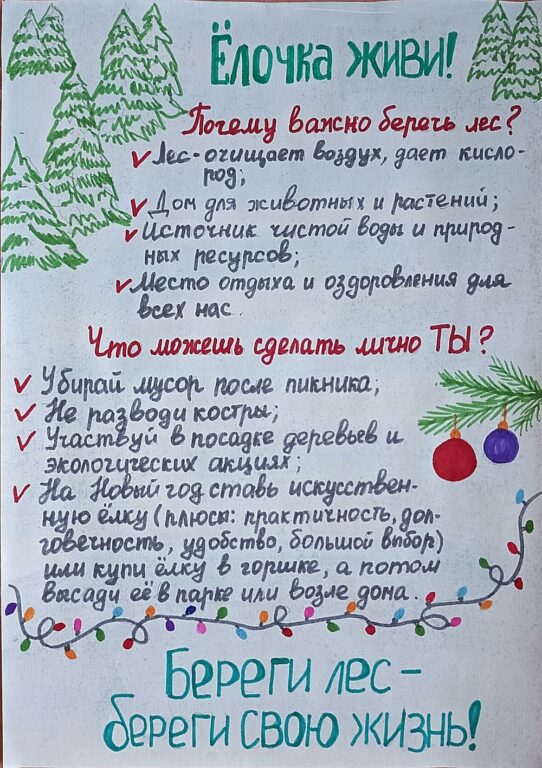 Ёлочка живи!
Почему важно беречь лес?
Лес - очищает воздух, дает кисло-
род;
Дом для животных и растений;
Источник чистой воды и природ-
ных ресурсов;
Место отдыха и оздоровления для
всех нас.
Что можешь сделать лично ТЫ?
Убирай мусор после пикника;
Не разводи костры;
Участвуй в посадке деревьев и
экологических акциях;
На Новый год ставь искусствен-
ную ёлку (плюсы: практичность, дол-
говечность, удобство, большой выбор)
или купи ёлку в горшке, а потом
высади её в парке или возле дома.
Береги лес -
береги свою жизнь!